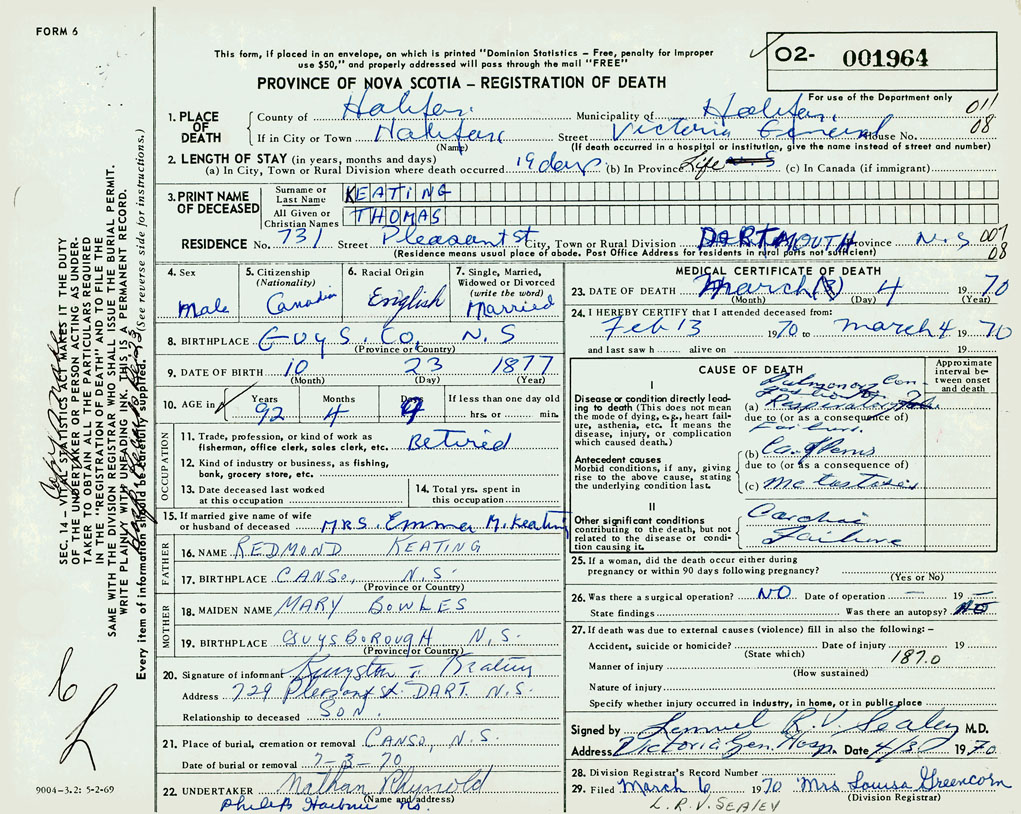 FORM 6
This form, if placed in an envelope, on which is printed "Dominion Statistics – Free, penalty for improper
use $50," and properly addressed will pass through the mail "FREE"
O2- 001964
PROVINCE OF NOVA SCOTIA – REGISTRATION OF DEATH
For use of the Department only
011
08
1. PLACE OF DEATH
County of Halifax Municipality of Halifax
If in City or Town Halifax Street Victoria General House No.
(Name) (If death occurred in a hospital or institution, give the name instead of street and number)
2. LENGTH OF STAY (in years, months and days)
(a) In City, Town or Rural Division where death occurred 19 days (b) In Province Life (c) In Canada (if immigrant)
3. PRINT NAME OF DECEASED
Surname or Last Name KEATING
All Given or Christian Names THOMAS
RESIDENCE No. 731 Street Pleasant St City, Town or Rural Division DARTMOUTH Province N.S 007
08
(Residence means usual place of abode. Post Office Address for residents in rural parts not sufficient)
4. Sex
Male
5. Citizenship
(Nationality)
Canadian
6. Racial Origin
English
7. Single, Married,
Widowed or Divorced
(write the word)
Married
8. BIRTHPLACE Guys. Co. N.S
(Province or Country)
9. DATE OF BIRTH 10 23 1877
(Month) (Day) (Year)
10. AGE in Years Months Days If less than one day old
92 4 hrs. or min.
OCCUPATION
11. Trade, profession, or kind of work as
fisherman, office clerk, sales clerk, etc. Retired
12. Kind of industry or business, as fishing,
bank, grocery store, etc.
13. Date deceased last worked
at this occupation
14. Total yrs. spent in
this occupation
15. If married give name of wife
or husband of deceased MRS. Emma M. Keating
FATHER
16. NAME REDMOND KEATING
17. BIRTHPLACE CANSO, N.S.
(Province or Country)
MOTHER
18. MAIDEN NAME MARY BOWLES
19. BIRTHPLACE GUYSBOROUGH N.S.
(Province or Country)
20. Signature of informant Keating
Address 729 Pleasant St. DART. N.S.
Relationship to deceased SON.
21. Place of burial, cremation or removal CANSO, N.S.
Date of burial or removal 7-3-70
22. UNDERTAKER Nathan
(Name and address)
Harbour N.S.
MEDICAL CERTIFICATE OF DEATH
23. DATE OF DEATH March (3) 4 1970
(Month) (Day) (Year)
24. I HEREBY CERTIFY that I attended deceased from:
Feb 13 1970 to March 4 1970
and last saw h alive on 19
CAUSE OF DEATH
Approximate
interval between
onset
and death
I
Disease or condition directly leading
to death (This does not mean
the mode of dying, e.g., heart failure,
asthenia, etc. It means the
disease, injury, or complication
which caused death.)
Pulmonary Congestion
(a) Respiratory
due to (or as a consequence of)
Failure
Antecedent causes
Morbid conditions, if any, giving
rise to the above cause, stating
the underlying condition last.
(b) Ca. of Penis
due to (or as a consequence of)
(c) Metastasis
II
Other significant conditions
contributing to the death, but not
related to the disease or condition
causing it.
Cardiac
Failure
25. If a woman, did the death occur either during
pregnancy or within 90 days following pregnancy?
(Yes or No)
26. Was there a surgical operation? NO Date of operation – 19 –
State findings Was there an autopsy? NO
27. If death was due to external causes (violence) fill in also the following: –
Accident, suicide or homicide? Date of injury 19
(State which) 187.0
Manner of injury
(How sustained)
Nature of injury
Specify whether injury occurred in industry, in home, or in public place
Signed by Lemuel R.V. Sealey M.D.
Address Victoria Gen. Hosp. Date 4/3 1970
28. Division Registrar's Record Number
29. Filed March 6 1970 Mrs Louisa Greencorn
(Division Registrar)
L.R.V. SEALEY
SEC. 14 – VITAL STATISTICS ACT MAKES IT THE DUTY
OF THE UNDERTAKER OR PERSON ACTING AS UNDER-
TAKER TO OBTAIN ALL THE PARTICULARS REQUIRED
IN THE "REGISTRATION OF DEATH" AND TO FILE THE
SAME WITH THE DIVISION REGISTRAR WHO SHALL ISSUE THE BURIAL PERMIT.
WRITE PLAINLY WITH UNFADING INK. THIS IS A PERMANENT RECORD.
Every item of information should be carefully supplied. (See reverse side for instructions.)
9004-3.2: 5-2-69